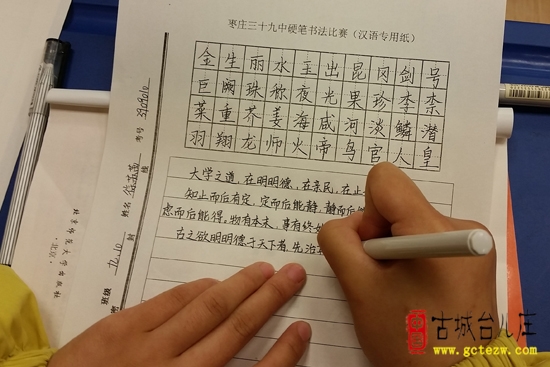 枣庄三十九中硬笔书法比赛（汉语专用纸）
金生丽水玉出昆冈剑号
巨阙珠称夜光果珍李柰
菜重芥姜海咸河淡鳞潜
羽翔龙师火帝鸟官人皇
大学之道，在明明德，在亲民，在止
知止而后有定，定而后能静，静而后
虑而后能得。物有本末，事有终始
古之欲明明德于天下者，先治
考号 3909016
姓名
班级 九.10
北京师范大学出版社
·北京·
古城台儿庄
www.gctezw.com